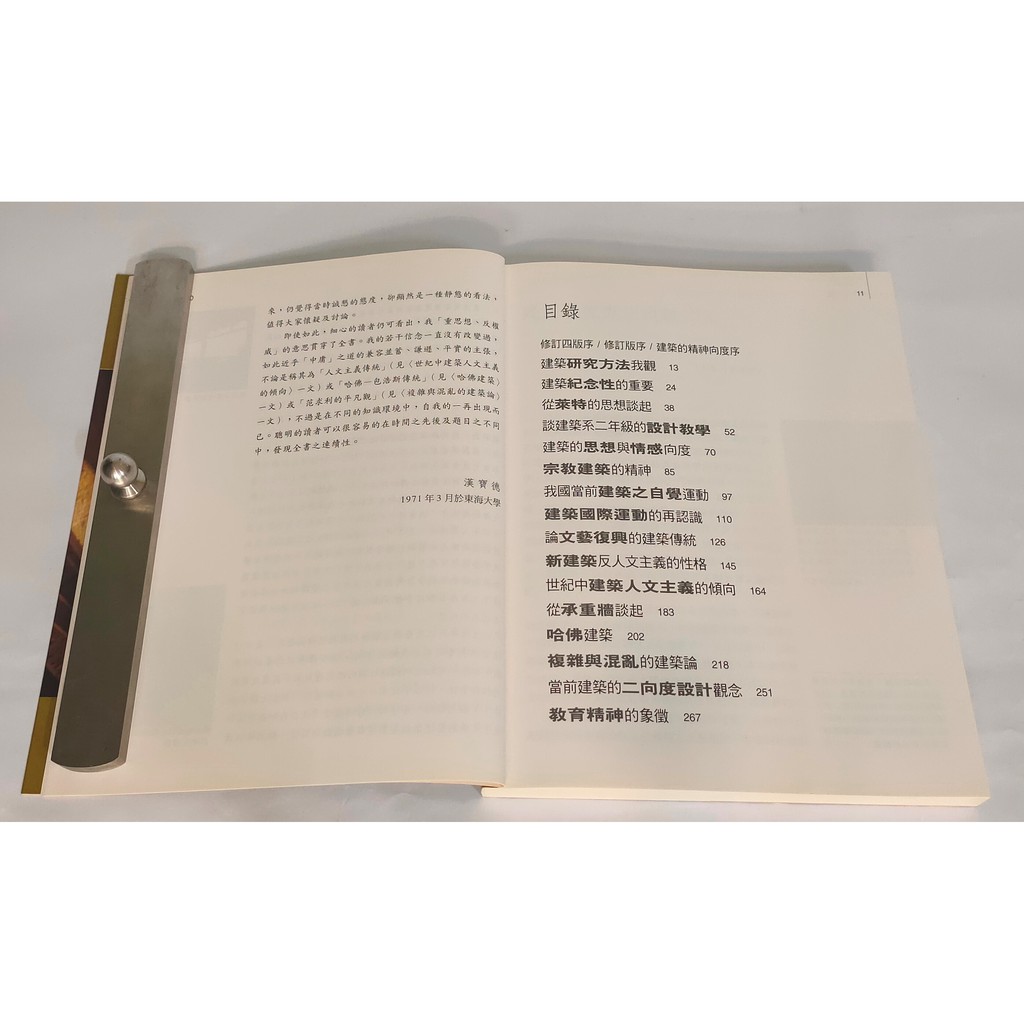 來，仍覺得當時誠懇的態度，卻顯然是一種靜態的看法，
值得大家懷疑及討論。
即使如此，細心的讀者仍可看出，我「重思想、反權
威」的意思貫穿了全書。我的若干信念一直沒有改變過，
如此近乎「中庸」之道的兼容並蓄、謙遜、平實的主張，
不論是稱其為「人文主義傳統」（見〈世紀中建築人文主義
的傾向〉一文）或「哈佛—包浩斯傳統」（見〈哈佛建築〉
一文）或「范裘利的平凡觀」（見〈複雜與混亂的建築論〉
一文），不過是在不同的知識環境中，自我的一再出現而
已。聰明的讀者可以很容易的在時間之先後及題目之不同
中，發現全書之連續性。
漢寶德
1971年3月於東海大學
11
目錄
修訂四版序 / 修訂版序 / 建築的精神向度序
建築研究方法我觀 13
建築紀念性的重要 24
從萊特的思想談起 38
談建築系二年級的設計教學 52
建築的思想與情感向度 70
宗教建築的精神 85
我國當前建築之自覺運動 97
建築國際運動的再認識 110
論文藝復興的建築傳統 126
新建築反人文主義的性格 145
世紀中建築人文主義的傾向 164
從承重牆談起 183
哈佛建築 202
複雜與混亂的建築論 218
當前建築的二向度設計觀念 251
教育精神的象徵 267